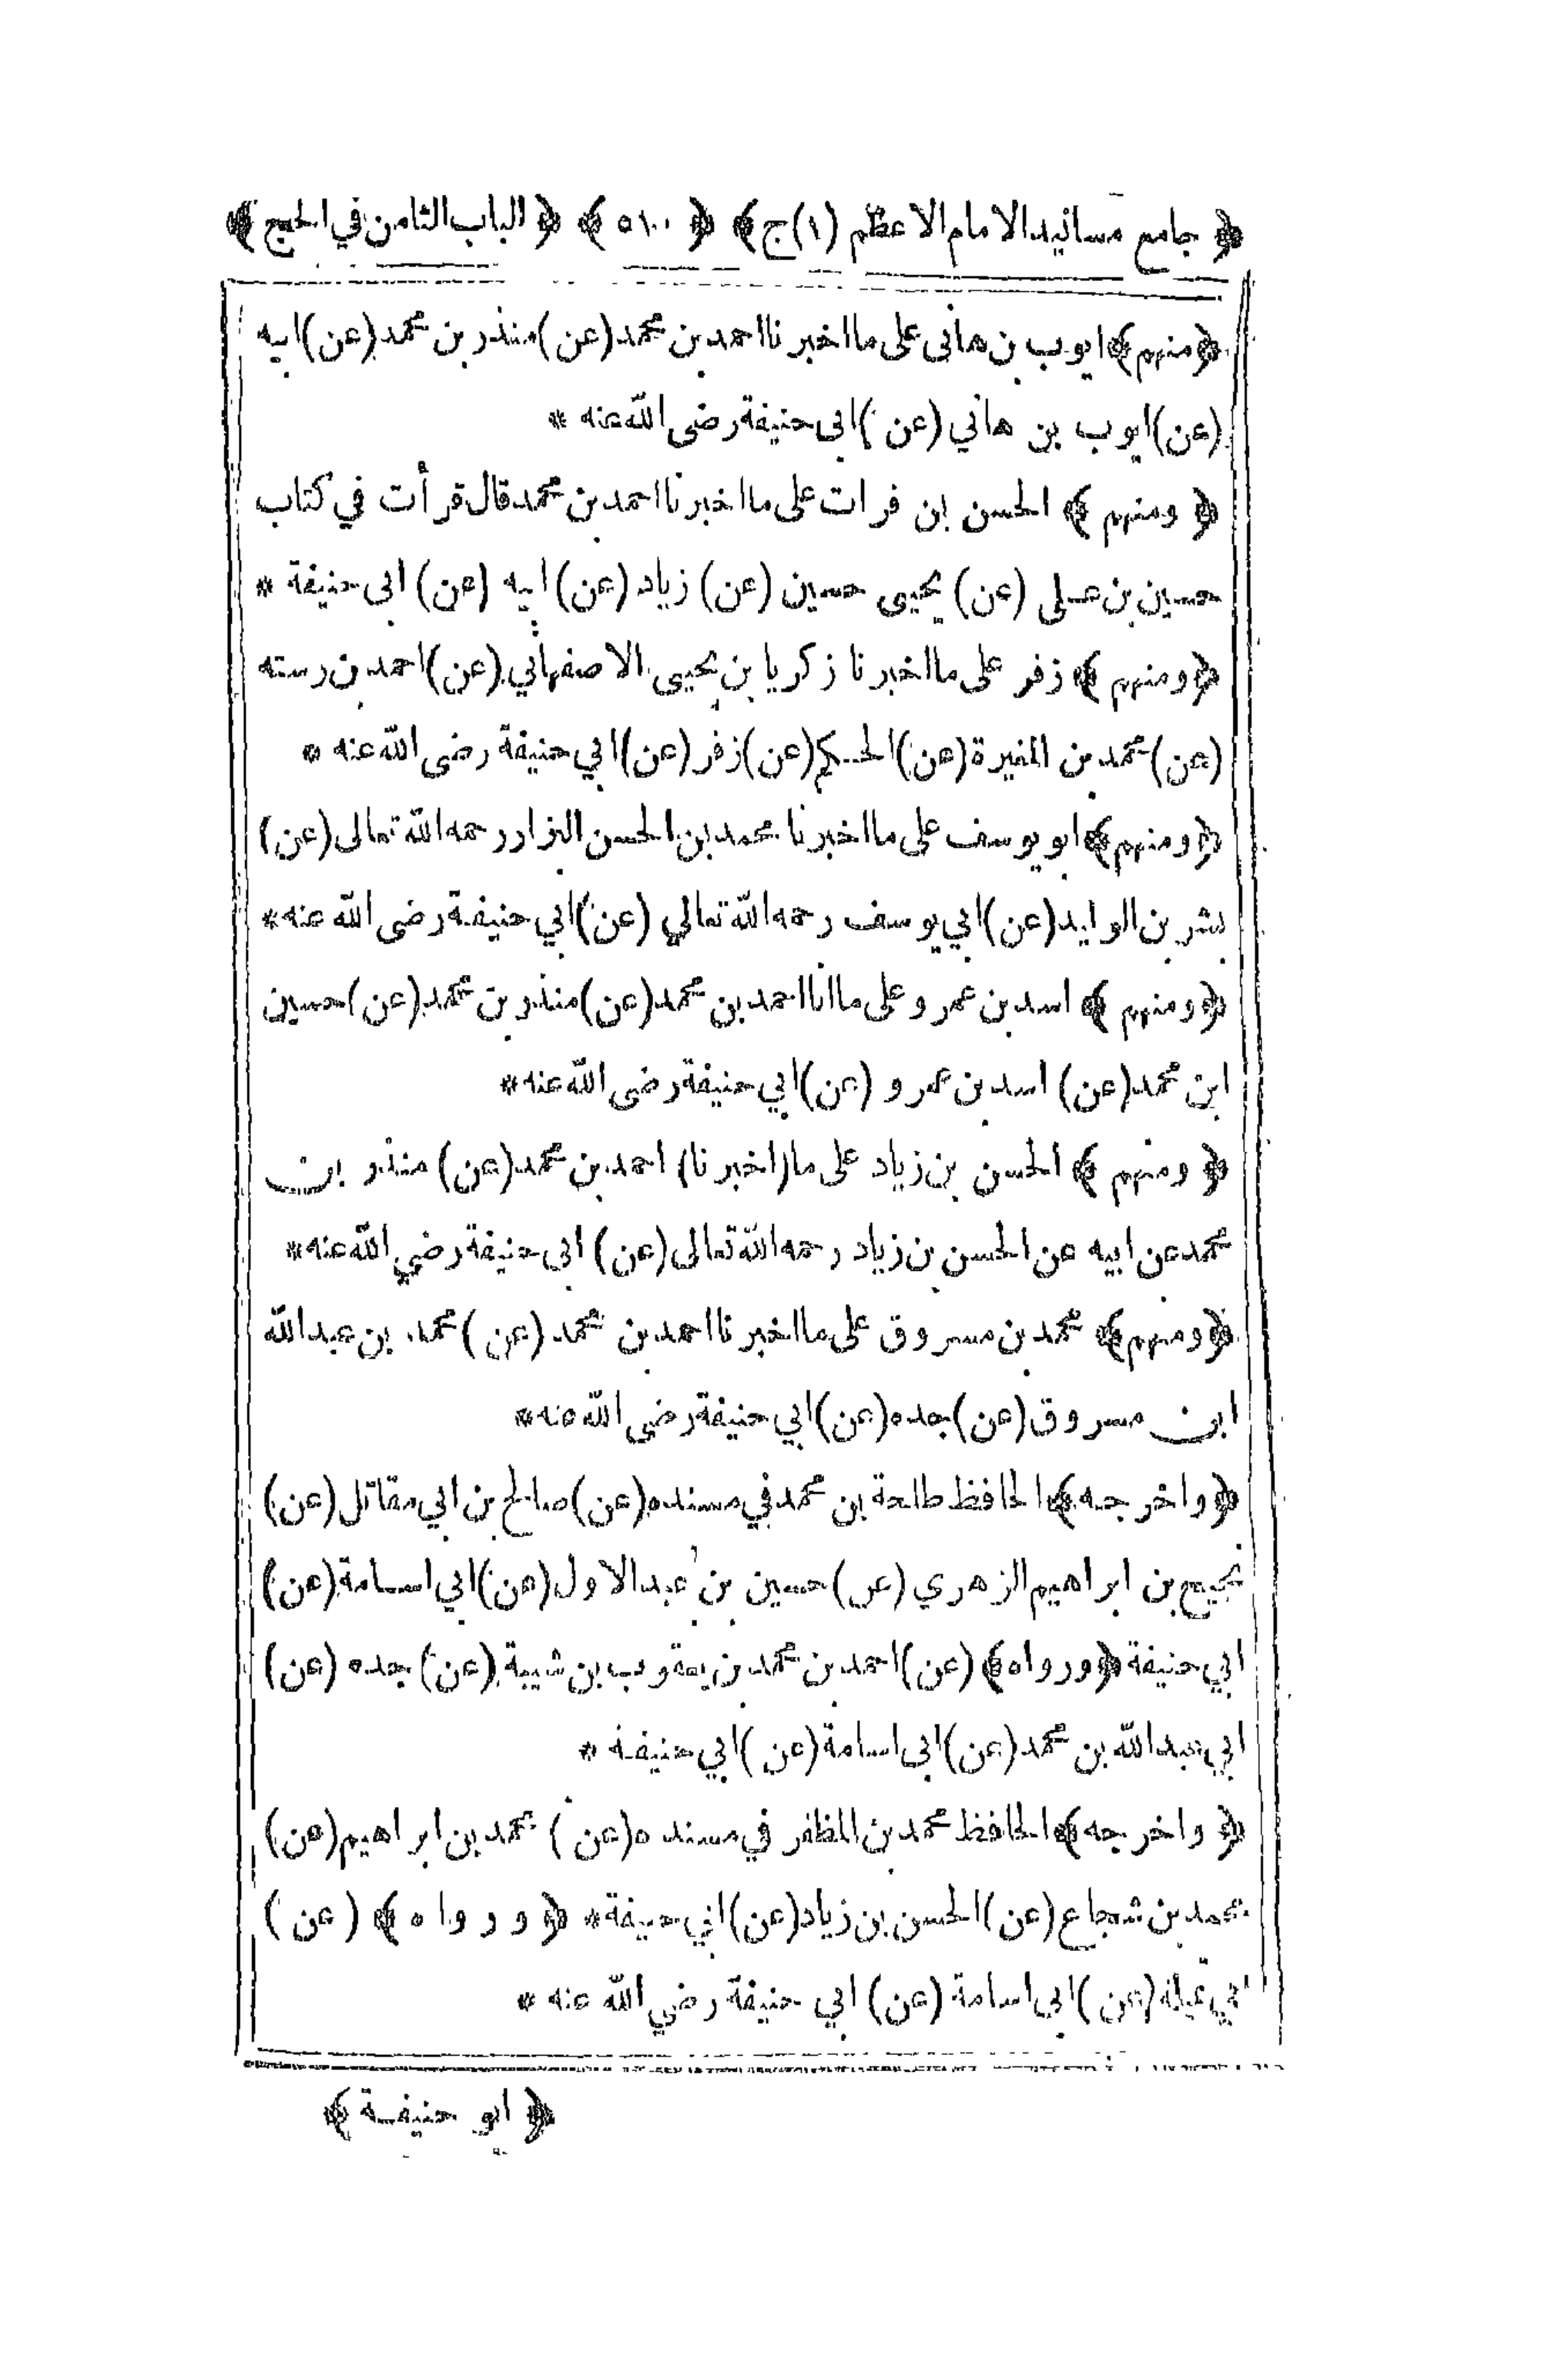 ﴿ جامع مسانيد الامام الاعظم (١) ج﴾ ﴿ ٥١٠ ﴾ ﴿ الباب الثامن في الحج ﴾
﴿ومنهم﴾ ايوب بن هانى على ما اخبرنا احمد بن محمد (عن) منذر بن محمد (عن) ابيه
(عن) ايوب بن هاني (عن) ابى حنيفة رضى الله عنه *
﴿ ومنهم ﴾ الحسن ابن فرات على ما اخبرنا احمد بن محمد قال قرأت في كتاب
حسين بن على (عن) يحيى حسين (عن) زياد (عن) ابيه (عن) ابى حنيفة *
﴿ومنهم ﴾ زفر على ما اخبرنا زكريا بن يحيى الاصفهاني (عن) احمد بن رسته
(عن) محمد بن المغيرة (عن) الحكم (عن) زفر (عن) ابي حنيفة رضى الله عنه *
﴿ومنهم﴾ ابو يوسف على ما اخبرنا محمد بن الحسن البزار رحمه الله تعالى (عن)
بشر بن الوليد (عن) ابي يوسف رحمه الله تعالي (عن) ابي حنيفة رضى الله عنه *
﴿ومنهم ﴾ اسد بن عمرو على ما انا احمد بن محمد (عن) منذر بن محمد (عن) حسين
ابن محمد (عن) اسد بن عمرو (عن) ابي حنيفة رضى الله عنه *
﴿ ومنهم ﴾ الحسن بن زياد على ما (اخبرنا) احمد بن محمد (عن) منذر بن
محمد عن ابيه عن الحسن بن زياد رحمه الله تعالى (عن) ابى حنيفة رضي الله عنه *
﴿ومنهم﴾ محمد بن مسروق على ما اخبرنا احمد بن محمد (عن) محمد بن عبد الله
ابن مسروق (عن) جده (عن) ابي حنيفة رضي الله عنه *
﴿واخرجه﴾ الحافظ طلحة بن محمد في مسنده (عن) صالح بن ابي مقاتل (عن)
نجيح بن ابراهيم الزهري (عن) حسين بن عبد الاول (عن) ابي اسامة (عن)
ابي حنيفة ﴿ورواه﴾ (عن) احمد بن محمد بن يعقوب بن شيبة (عن) جده (عن)
ابي عبد الله بن محمد (عن) ابى اسامة (عن) ابي حنيفة *
﴿ واخرجه﴾ الحافظ محمد بن المظفر في مسنده (عن) محمد بن ابراهيم (عن)
محمد بن شجاع (عن) الحسن بن زياد (عن) ابي حنيفة * ﴿ ورواه ﴾ (عن)
(عن) ابى اسامة (عن) ابي حنيفة رضي الله عنه *
﴿ ابو حنيفة ﴾